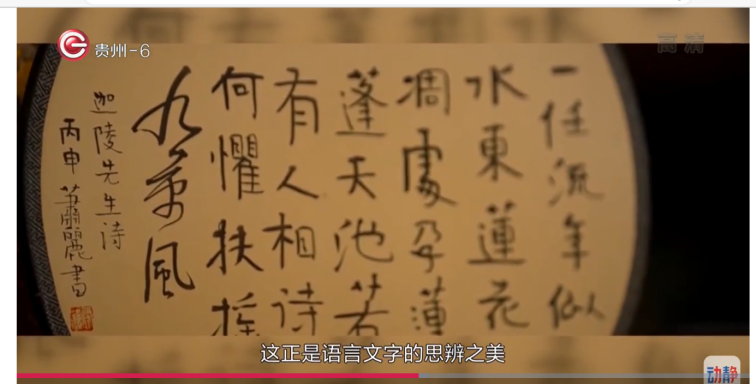 贵州-6
高清
一任流年似
水東蓮花
凋處孕蓮
蓬天池若
有人相待
何懼扶搖
九萬風
迦陵先生诗
丙申蕭麗書
这正是语言文字的思辨之美
动静